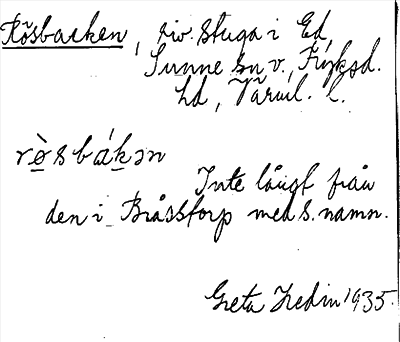 Rösbacken, riv. stuga i Ed,
Sunne sn v., Fryksd.
hd, Värml. l.
rö̀sbákən
Inte långt från
den i Bråstorp med s. namn.
Greta Hedin 1935.